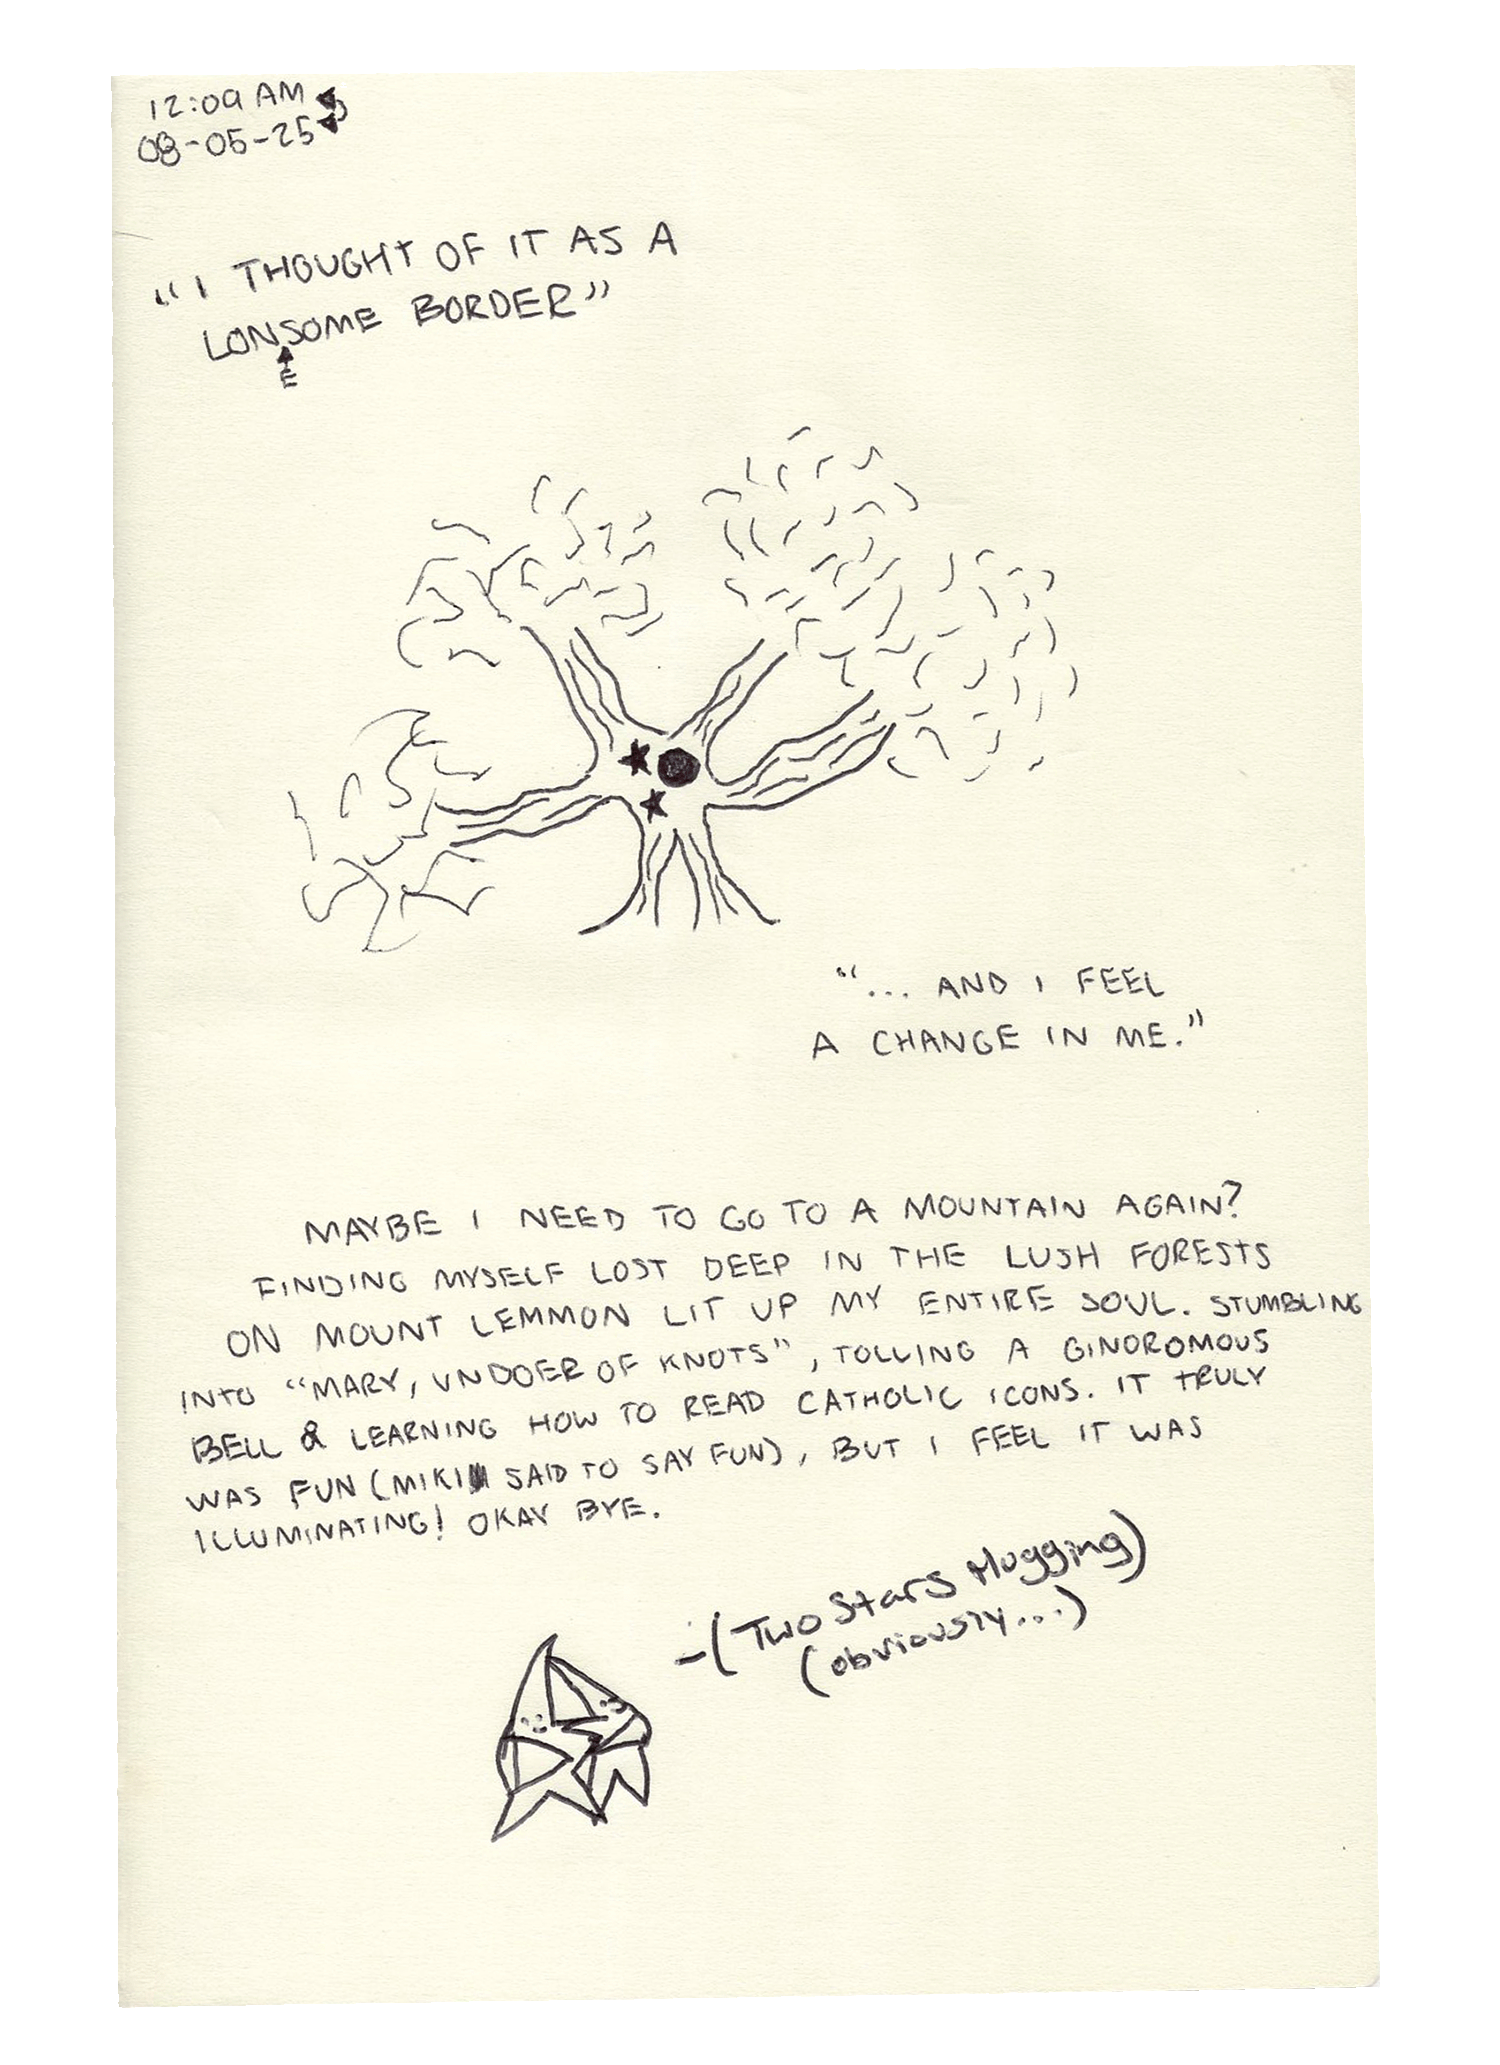 12:09 AM
08-05-25
"I THOUGHT OF IT AS A
LONSOME BORDER"
E
"... AND I FEEL
A CHANGE IN ME."
MAYBE I NEED TO GO TO A MOUNTAIN AGAIN?
FINDING MYSELF LOST DEEP IN THE LUSH FORESTS
ON MOUNT LEMMON LIT UP MY ENTIRE SOUL. STUMBLING
INTO "MARY, UNDOER OF KNOTS", TOLLING A GINOROMOUS
BELL & LEARNING HOW TO READ CATHOLIC ICONS. IT TRULY
WAS FUN (MIKI SAID TO SAY FUN), BUT I FEEL IT WAS
ILLUMINATING! OKAY BYE.
-(Two Stars Hugging)
(obviously...)